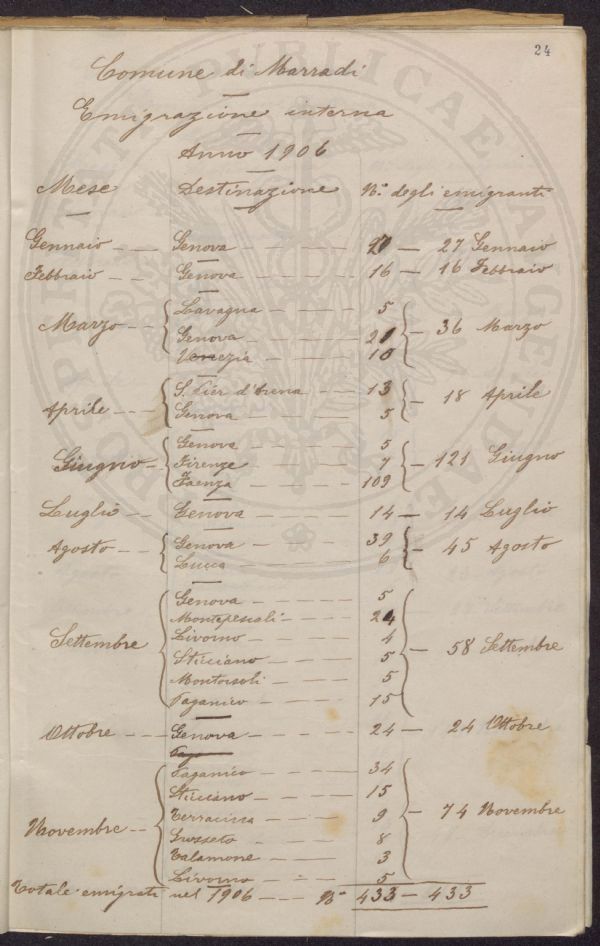 24
Comune di Marradi
Emigrazione interna
Anno 1906
Mese Destinazione N.° degli emigranti
Gennaio Genova 27 — 27 Gennaio
Febbraio Genova 16 — 16 Febbraio
Lavagna 5
Marzo Genova 21 — 36 Marzo
Venezia 10
S. Pier d'Arena 13
Aprile Genova 5 — 18 Aprile
Genova 5
Giugno Firenze 7 — 121 Giugno
Faenza 109
Luglio Genova 14 — 14 Luglio
Agosto Genova 39 — 45 Agosto
Lucca 6
Genova 5
Montepescali 24
Livorno 4
Settembre Sticciano 5 — 58 Settembre
Montorsoli 5
Paganico 15
Ottobre Genova 24 — 24 Ottobre
Paganico 34
Sticciano 15
Terracina 9 — 74 Novembre
Novembre Grosseto 8
Talamone 3
Livorno 5
Totale emigrati nel 1906 N° 433 — 433
PROSPERITATI PUBLICAE AUGENDAE